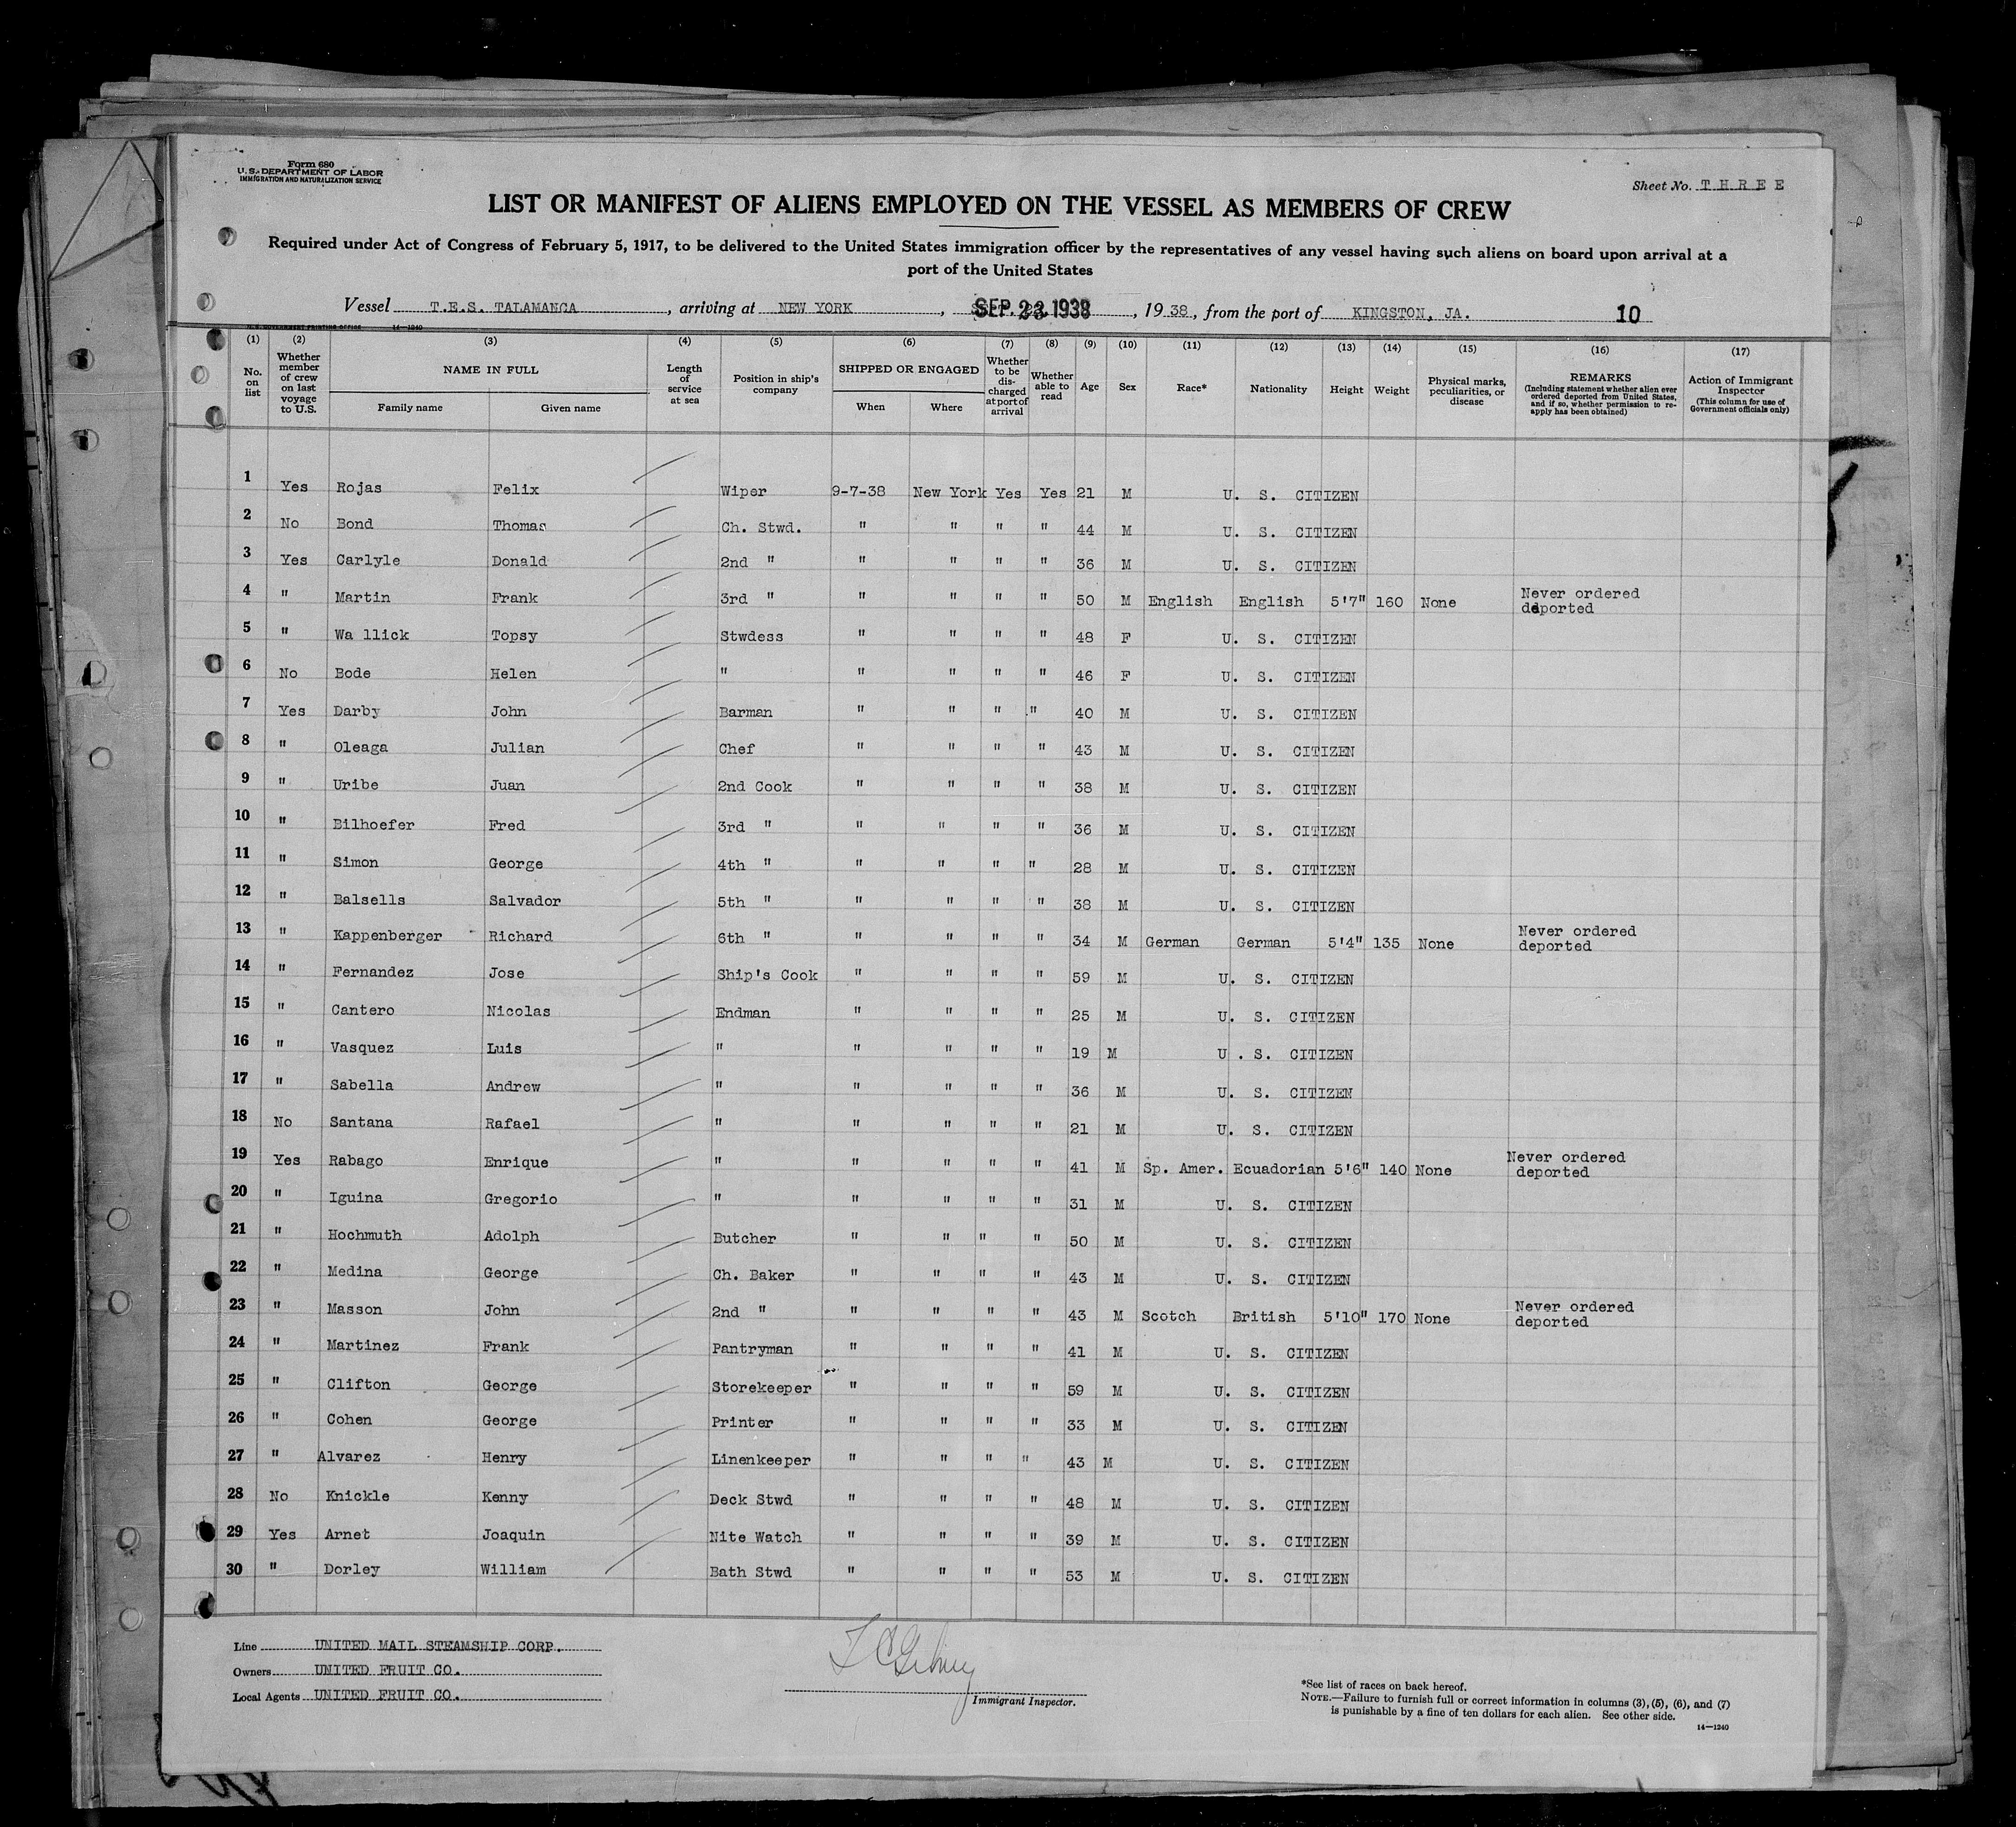 Form 680
U. S. DEPARTMENT OF LABOR
IMMIGRATION AND NATURALIZATION SERVICE
Sheet No. THREE
LIST OR MANIFEST OF ALIENS EMPLOYED ON THE VESSEL AS MEMBERS OF CREW
Required under Act of Congress of February 5, 1917, to be delivered to the United States immigration officer by the representatives of any vessel having such aliens on board upon arrival at a
port of the United States
Vessel T.E.S. TALAMANCA, arriving at NEW YORK, SEP 23 1938, 1938, from the port of KINGSTON, JA. 10
U. S. GOVERNMENT PRINTING OFFICE 14—1240
(1) No. on list (2) Whether member of crew on last voyage to U.S. (3) NAME IN FULL Family name Given name (4) Length of service at sea (5) Position in ship's company (6) SHIPPED OR ENGAGED When Where (7) Whether to be discharged at port of arrival (8) Whether able to read (9) Age (10) Sex (11) Race* (12) Nationality (13) Height (14) Weight (15) Physical marks, peculiarities, or disease (16) REMARKS (Including statement whether alien ever ordered deported from United States, and if so, whether permission to reapply has been obtained) (17) Action of Immigrant Inspector (This column for use of Government officials only)
1 Yes Rojas Felix Wiper 9-7-38 New York Yes Yes 21 M U. S. CITIZEN
2 No Bond Thomas Ch. Stwd. " " " " 44 M U. S. CITIZEN
3 Yes Carlyle Donald 2nd " " " " " 36 M U. S. CITIZEN
4 " Martin Frank 3rd " " " " " 50 M English English 5'7" 160 None Never ordered deported
5 " Wa llick Topsy Stwdess " " " " 48 F U. S. CITIZEN
6 No Bode Helen " " " " " 46 F U. S. CITIZEN
7 Yes Darby John Barman " " " " 40 M U. S. CITIZEN
8 " Oleaga Julian Chef " " " " 43 M U. S. CITIZEN
9 " Uribe Juan 2nd Cook " " " " 38 M U. S. CITIZEN
10 " Bilhoefer Fred 3rd " " " " " 36 M U. S. CITIZEN
11 " Simon George 4th " " " " " 28 M U. S. CITIZEN
12 " Balsells Salvador 5th " " " " " 38 M U. S. CITIZEN
13 " Kappenberger Richard 6th " " " " " 34 M German German 5'4" 135 None Never ordered deported
14 " Fernandez Jose Ship's Cook " " " " 59 M U. S. CITIZEN
15 " Cantero Nicolas Endman " " " " 25 M U. S. CITIZEN
16 " Vasquez Luis " " " " " 19 M U . S. CITIZEN
17 " Sabella Andrew " " " " " 36 M U. S. CITIZEN
18 No Santana Rafael " " " " " 21 M U. S. CITIZEN
19 Yes Rabago Enrique " " " " " 41 M Sp. Amer. Ecuadorian 5'6" 140 None Never ordered deported
20 " Iguina Gregorio " " " " " 31 M U. S. CITIZEN
21 " Hochmuth Adolph Butcher " " " " 50 M U. S. CITIZEN
22 " Medina George Ch. Baker " " " " 43 M U. S. CITIZEN
23 " Masson John 2nd " " " " " 43 M Scotch British 5'10" 170 None Never ordered deported
24 " Martinez Frank Pantryman " " " " 41 M U. S. CITIZEN
25 " Clifton George Storekeeper " " " " 59 M U. S. CITIZEN
26 " Cohen George Printer " " " " 33 M U. S. CITIZEN
27 " Alvarez Henry Linenkeeper " " " " 43 M U. S. CITIZEN
28 No Knickle Kenny Deck Stwd " " " " 48 M U. S. CITIZEN
29 Yes Arnet Joaquin Nite Watch " " " " 39 M U. S. CITIZEN
30 " Dorley William Bath Stwd " " " " 53 M U. S. CITIZEN
Line UNITED MAIL STEAMSHIP CORP.
Owners UNITED FRUIT CO.
Local Agents UNITED FRUIT CO.
Immigrant Inspector.
*See list of races on back hereof.
NOTE.—Failure to furnish full or correct information in columns (3), (5), (6), and (7)
is punishable by a fine of ten dollars for each alien. See other side.
14—1240